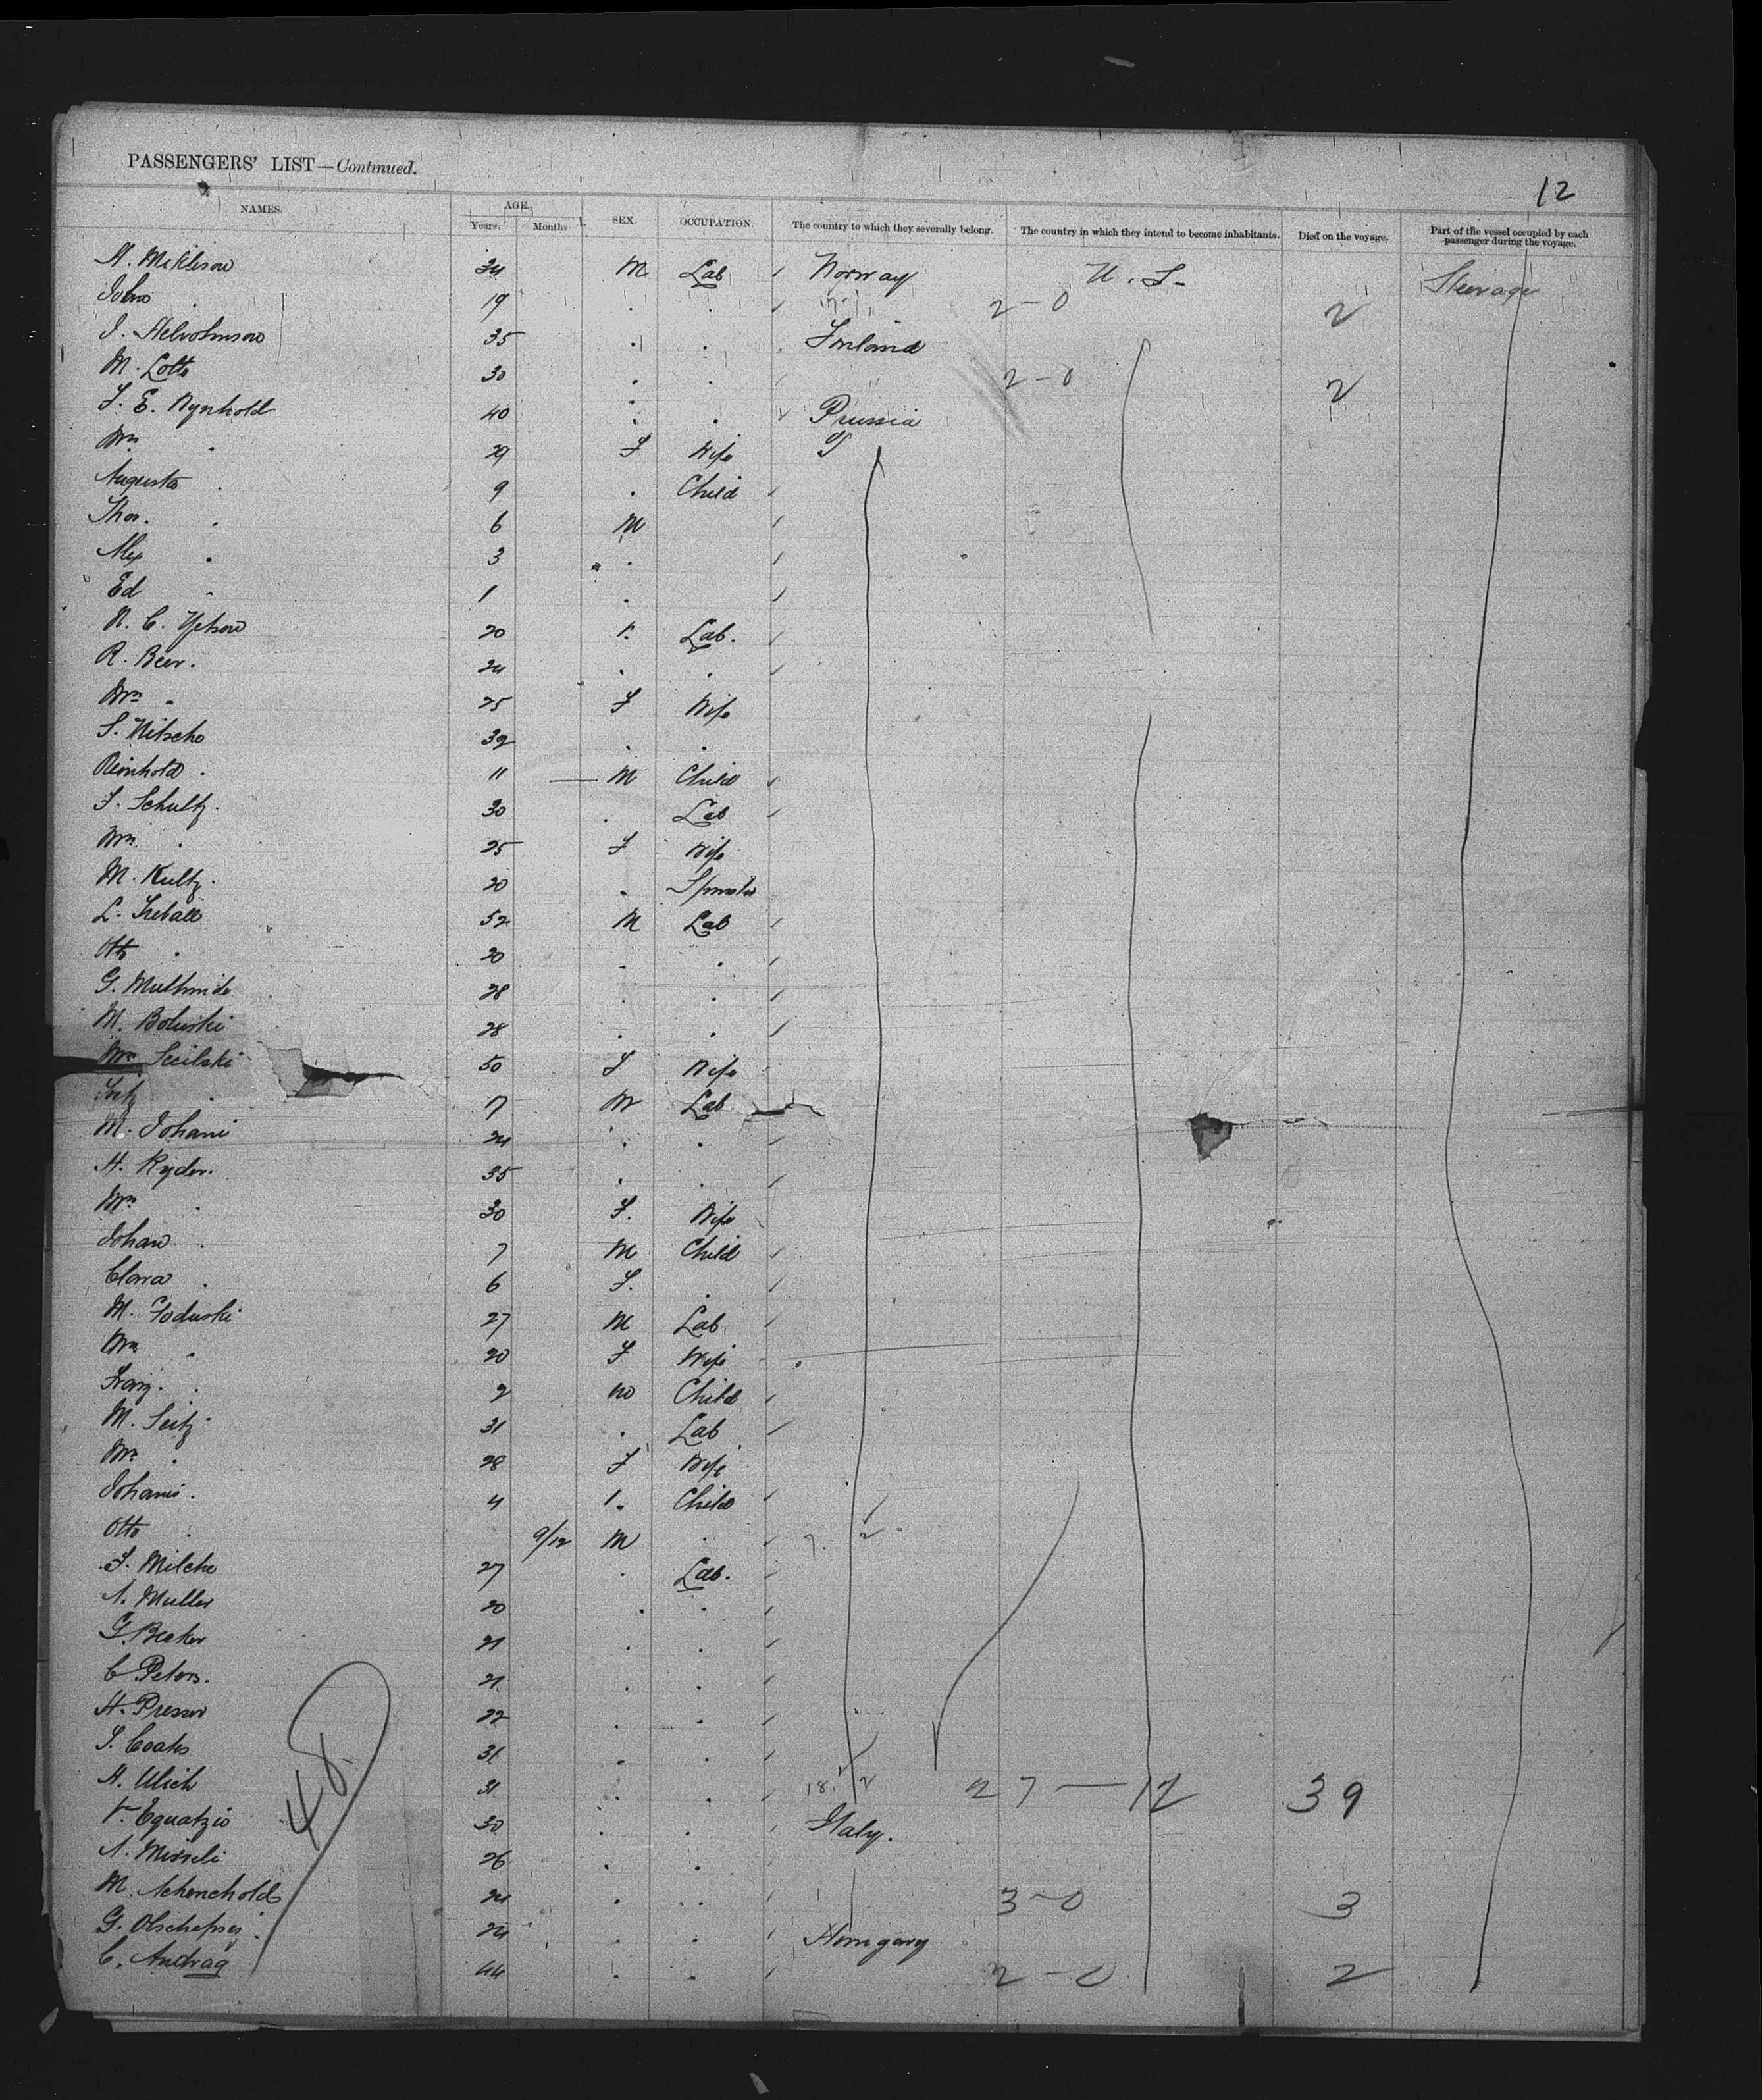 PASSENGERS' LIST—Continued.
12
NAMES. AGE. SEX. OCCUPATION. The country to which they severally belong. The country in which they intend to become inhabitants. Died on the voyage. Part of the vessel occupied by each passenger during the voyage.
Years. Months
24 M Lab Norway U.S. Steerage
John 19 2-0 2
35 Finland
M. Lotto 30 2-0 2
F. E. Nynhold 40 Prussia
Mrs 29 F Wife
Augusta 9 Child
Thos. 6 M
Alex 3
Ed 1
20 Lab.
R. Beer. 24
Mrs 25 F Wife
S. Nitsche 32
Reinhold 11 M Child
F. Schultz. 30 Lab
Mrs 25 F Wife
M. Kultz. 20
52 M Lab
Otto 20
28
M. Boluski 28
Mrs Secilski 50 F Wife
Fritz 7 M Lab
M. Johani 24
H. Ryder. 35
Mrs 30 F. Wife
Johan 7 M Child
Clara 6 F.
M. Goduski 27 M Lab
Mrs 20 F Wife
Franz. 2 m Child
M. Seitz 31 Lab
Mrs 28 F Wife
Johanis 4 Child
Otto 9/12 M
F. Milche 27 Lab.
A. Muller 20
G. Becker 21
C Peters. 21
H. Presser 22
S. Coates 31
H. Ulich 31 18 27—12 39
V. Equatzio 30 Italy.
A. Misseli 26
M. Achenchold 24 3-0 3
24 Hungary
C. Andrag 44 2-0 2
48